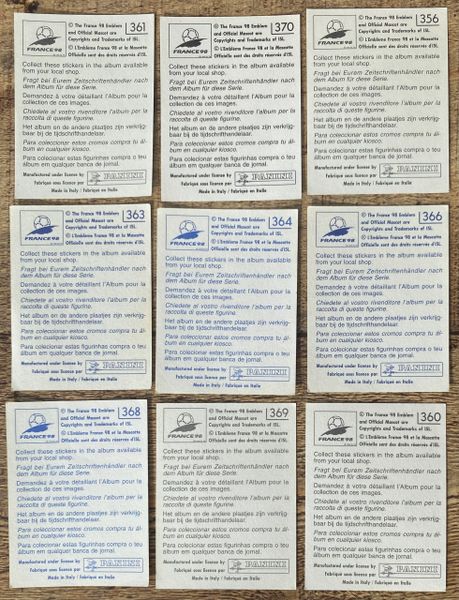 FRANCE 98
© The France 98 Emblem
and Official Mascot are
Copyrights and Trademarks of ISL.
© L'Emblème France 98 et la Mascotte
Officielle sont des droits réservés d'ISL.
361
Collect these stickers in the album available
from your local shop.
Fragt bei Eurem Zeitschriftenhändler nach
dem Album für diese Serie.
Demandez à votre détaillant l'Album pour la
collection de ces images.
Chiedete al vostro rivenditore l'album per la
raccolta di queste figurine.
Het album en de andere plaatjes zijn verkrijg-
baar bij de tijdschrifthandelaar.
Para coleccionar estos cromos compra tu ál-
bum en cualquier kiosco.
Para colecionar estas figurinhas compra o teu
álbum em qualquer banca de jornal.
Manufactured under licence by
Fabriqué sous licence par
PANINI
Made in Italy / Fabriqué en Italie
FRANCE 98
© The France 98 Emblem
and Official Mascot are
Copyrights and Trademarks of ISL.
© L'Emblème France 98 et la Mascotte
Officielle sont des droits réservés d'ISL.
370
Collect these stickers in the album available
from your local shop.
Fragt bei Eurem Zeitschriftenhändler nach
dem Album für diese Serie.
Demandez à votre détaillant l'Album pour la
collection de ces images.
Chiedete al vostro rivenditore l'album per la
raccolta di queste figurine.
Het album en de andere plaatjes zijn verkrijg-
baar bij de tijdschrifthandelaar.
Para coleccionar estos cromos compra tu ál-
bum en cualquier kiosco.
Para colecionar estas figurinhas compra o teu
álbum em qualquer banca de jornal.
Manufactured under licence by
Fabriqué sous licence par
PANINI
Made in Italy / Fabriqué en Italie
FRANCE 98
© The France 98 Emblem
and Official Mascot are
Copyrights and Trademarks of ISL.
© L'Emblème France 98 et la Mascotte
Officielle sont des droits réservés d'ISL.
356
Collect these stickers in the album available
from your local shop.
Fragt bei Eurem Zeitschriftenhändler nach
dem Album für diese Serie.
Demandez à votre détaillant l'Album pour la
collection de ces images.
Chiedete al vostro rivenditore l'album per la
raccolta di queste figurine.
Het album en de andere plaatjes zijn verkrijg-
baar bij de tijdschrifthandelaar.
Para coleccionar estos cromos compra tu ál-
bum en cualquier kiosco.
Para colecionar estas figurinhas compra o teu
álbum em qualquer banca de jornal.
Manufactured under licence by
Fabriqué sous licence par
PANINI
Made in Italy / Fabriqué en Italie
FRANCE 98
© The France 98 Emblem
and Official Mascot are
Copyrights and Trademarks of ISL.
© L'Emblème France 98 et la Mascotte
Officielle sont des droits réservés d'ISL.
363
Collect these stickers in the album available
from your local shop.
Fragt bei Eurem Zeitschriftenhändler nach
dem Album für diese Serie.
Demandez à votre détaillant l'Album pour la
collection de ces images.
Chiedete al vostro rivenditore l'album per la
raccolta di queste figurine.
Het album en de andere plaatjes zijn verkrijg-
baar bij de tijdschrifthandelaar.
Para coleccionar estos cromos compra tu ál-
bum en cualquier kiosco.
Para colecionar estas figurinhas compra o teu
álbum em qualquer banca de jornal.
Manufactured under licence by
Fabriqué sous licence par
PANINI
Made in Italy / Fabriqué en Italie
FRANCE 98
© The France 98 Emblem
and Official Mascot are
Copyrights and Trademarks of ISL.
© L'Emblème France 98 et la Mascotte
Officielle sont des droits réservés d'ISL.
364
Collect these stickers in the album available
from your local shop.
Fragt bei Eurem Zeitschriftenhändler nach
dem Album für diese Serie.
Demandez à votre détaillant l'Album pour la
collection de ces images.
Chiedete al vostro rivenditore l'album per la
raccolta di queste figurine.
Het album en de andere plaatjes zijn verkrijg-
baar bij de tijdschrifthandelaar.
Para coleccionar estos cromos compra tu ál-
bum en cualquier kiosco.
Para colecionar estas figurinhas compra o teu
álbum em qualquer banca de jornal.
Manufactured under licence by
Fabriqué sous licence par
PANINI
Made in Italy / Fabriqué en Italie
FRANCE 98
© The France 98 Emblem
and Official Mascot are
Copyrights and Trademarks of ISL.
© L'Emblème France 98 et la Mascotte
Officielle sont des droits réservés d'ISL.
366
Collect these stickers in the album available
from your local shop.
Fragt bei Eurem Zeitschriftenhändler nach
dem Album für diese Serie.
Demandez à votre détaillant l'Album pour la
collection de ces images.
Chiedete al vostro rivenditore l'album per la
raccolta di queste figurine.
Het album en de andere plaatjes zijn verkrijg-
baar bij de tijdschrifthandelaar.
Para coleccionar estos cromos compra tu ál-
bum en cualquier kiosco.
Para colecionar estas figurinhas compra o teu
álbum em qualquer banca de jornal.
Manufactured under licence by
Fabriqué sous licence par
PANINI
Made in Italy / Fabriqué en Italie
FRANCE 98
© The France 98 Emblem
and Official Mascot are
Copyrights and Trademarks of ISL.
© L'Emblème France 98 et la Mascotte
Officielle sont des droits réservés d'ISL.
368
Collect these stickers in the album available
from your local shop.
Fragt bei Eurem Zeitschriftenhändler nach
dem Album für diese Serie.
Demandez à votre détaillant l'Album pour la
collection de ces images.
Chiedete al vostro rivenditore l'album per la
raccolta di queste figurine.
Het album en de andere plaatjes zijn verkrijg-
baar bij de tijdschrifthandelaar.
Para coleccionar estos cromos compra tu ál-
bum en cualquier kiosco.
Para colecionar estas figurinhas compra o teu
álbum em qualquer banca de jornal.
Manufactured under licence by
Fabriqué sous licence par
PANINI
Made in Italy / Fabriqué en Italie
FRANCE 98
© The France 98 Emblem
and Official Mascot are
Copyrights and Trademarks of ISL.
© L'Emblème France 98 et la Mascotte
Officielle sont des droits réservés d'ISL.
369
Collect these stickers in the album available
from your local shop.
Fragt bei Eurem Zeitschriftenhändler nach
dem Album für diese Serie.
Demandez à votre détaillant l'Album pour la
collection de ces images.
Chiedete al vostro rivenditore l'album per la
raccolta di queste figurine.
Het album en de andere plaatjes zijn verkrijg-
baar bij de tijdschrifthandelaar.
Para coleccionar estos cromos compra tu ál-
bum en cualquier kiosco.
Para colecionar estas figurinhas compra o teu
álbum em qualquer banca de jornal.
Manufactured under licence by
Fabriqué sous licence par
PANINI
Made in Italy / Fabriqué en Italie
FRANCE 98
© The France 98 Emblem
and Official Mascot are
Copyrights and Trademarks of ISL.
© L'Emblème France 98 et la Mascotte
Officielle sont des droits réservés d'ISL.
360
Collect these stickers in the album available
from your local shop.
Fragt bei Eurem Zeitschriftenhändler nach
dem Album für diese Serie.
Demandez à votre détaillant l'Album pour la
collection de ces images.
Chiedete al vostro rivenditore l'album per la
raccolta di queste figurine.
Het album en de andere plaatjes zijn verkrijg-
baar bij de tijdschrifthandelaar.
Para coleccionar estos cromos compra tu ál-
bum en cualquier kiosco.
Para colecionar estas figurinhas compra o teu
álbum em qualquer banca de jornal.
Manufactured under licence by
Fabriqué sous licence par
PANINI
Made in Italy / Fabriqué en Italie